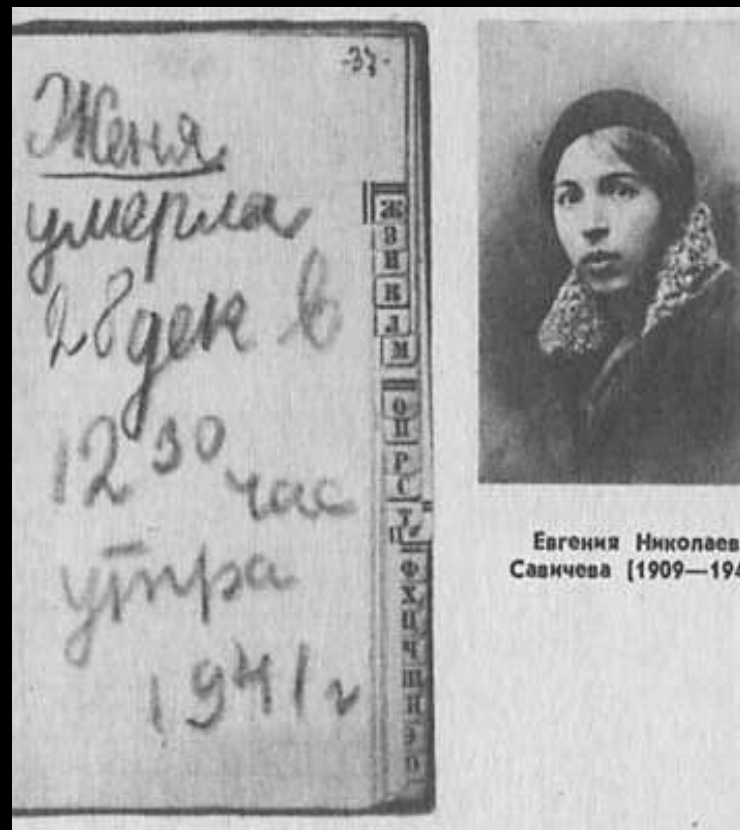 -37-
Женя
умерла
28 дек в
12 30 час
утра
1941 г
Ж
З
И
К
Л
М
О
П
Р
С
Т
Ф
Х
Ц
Ч
Ш
Щ
Э
Евгения Николаев
Савичева (1909—194